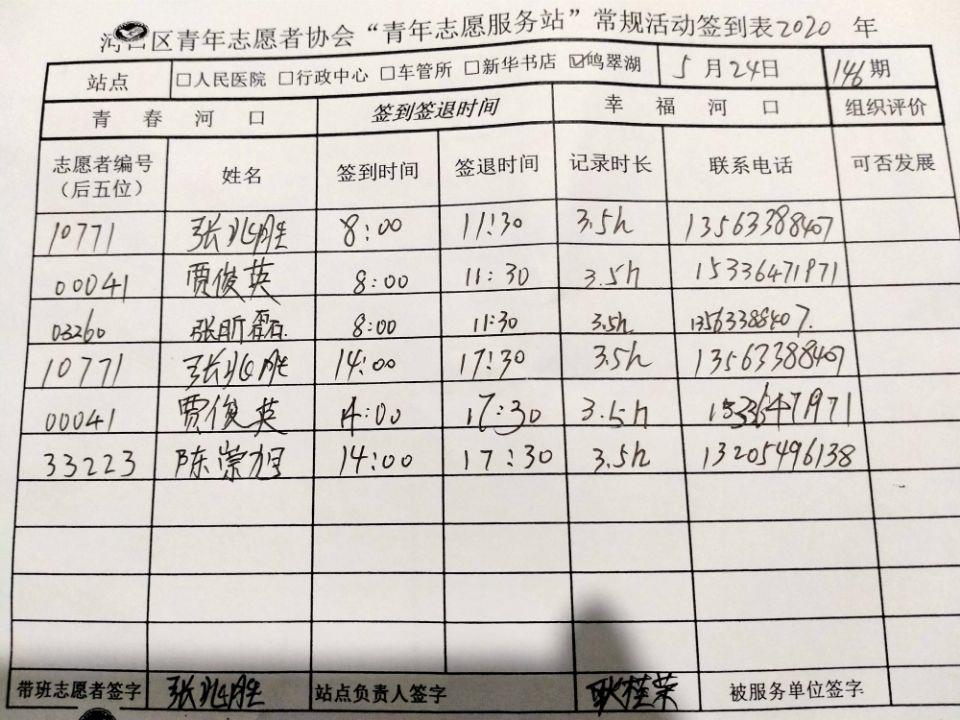 河口区青年志愿者协会“青年志愿服务站”常规活动签到表2020 年
站点 □人民医院 □行政中心 □车管所 □新华书店 ☑鸣翠湖 5 月 24日 146期
青 春 河 口 签到签退时间 幸 福 河 口 组织评价
志愿者编号（后五位） 姓名 签到时间 签退时间 记录时长 联系电话 可否发展
10771 张兆胜 8:00 11:30 3.5h 13563388407
00041 贾俊英 8:00 11:30 3.5h 15336471971
03260 张昕磊 8:00 11:30 3.5h 13563388407.
10771 张兆胜 14:00 17:30 3.5h 13563388407
00041 贾俊英 14:00 17:30 3.5h 15336471971
33223 陈崇旭 14:00 17:30 3.5h 13205496138
带班志愿者签字 张兆胜 站点负责人签字 耿桂荣 被服务单位签字